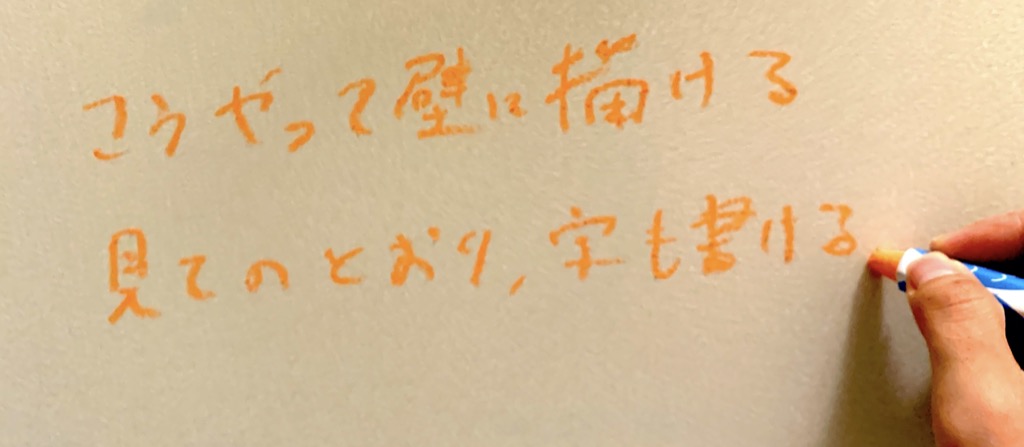 こうやって壁に描ける
見てのとおり,字も書ける